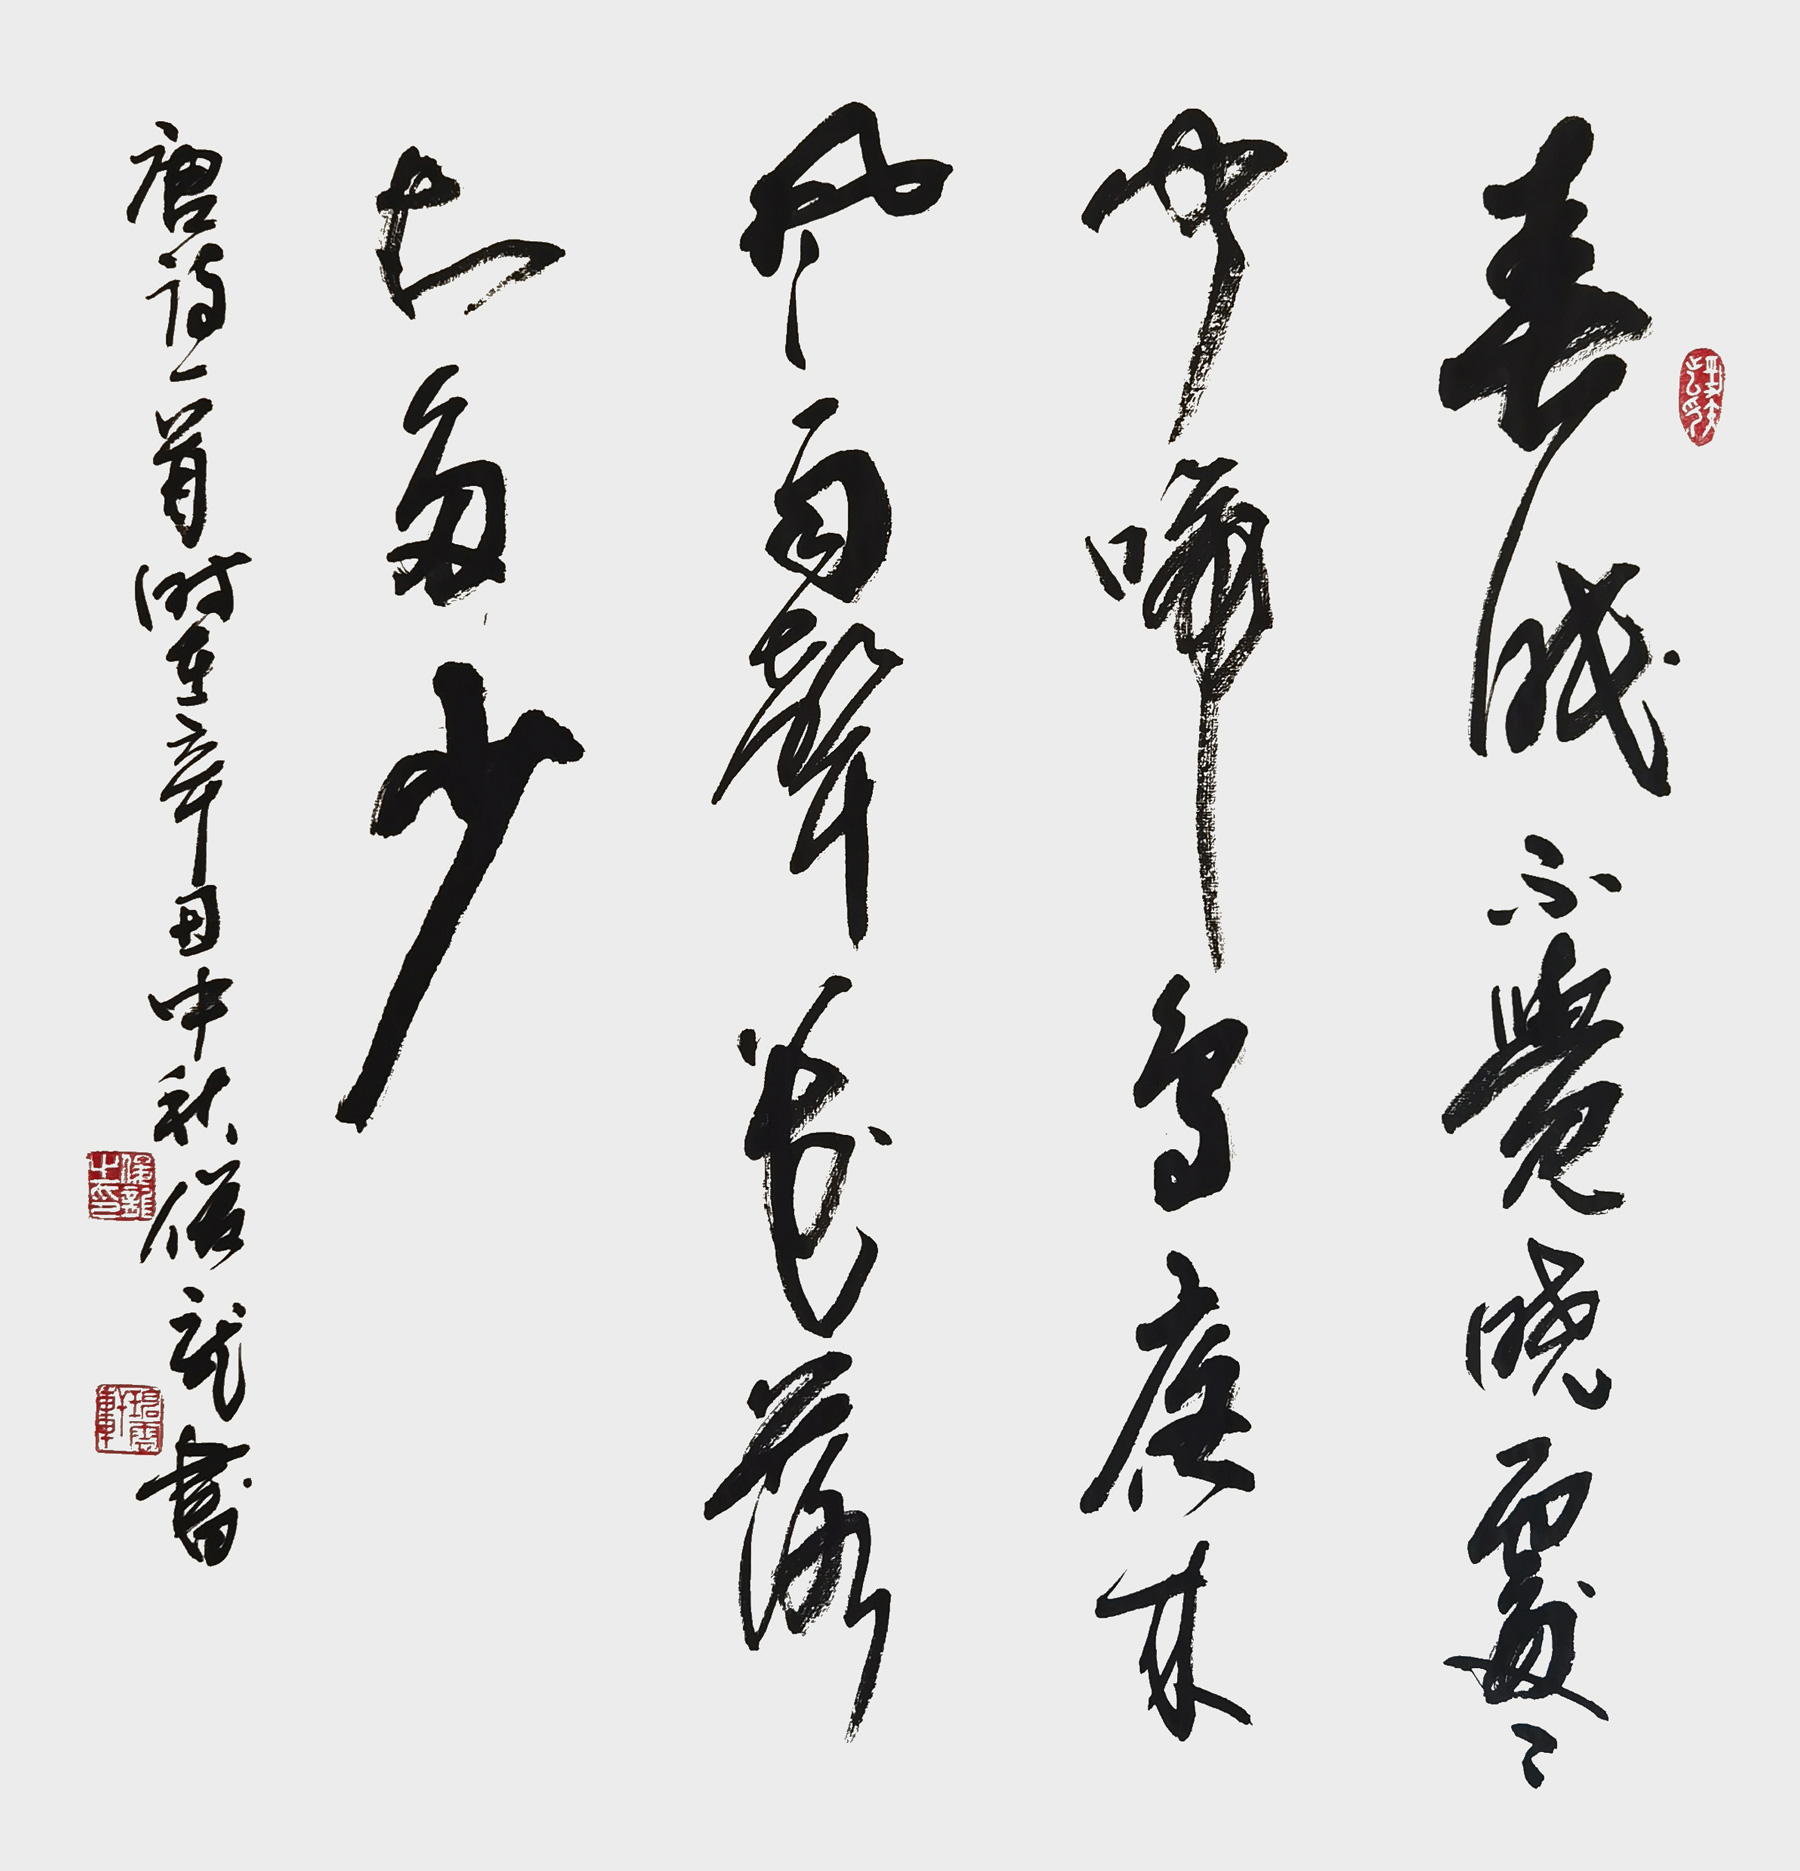 春眠不覺曉處〻
聞啼鳥夜来
風雨聲花落
知多少
唐詩一首時在辛丑中秋俊龍書